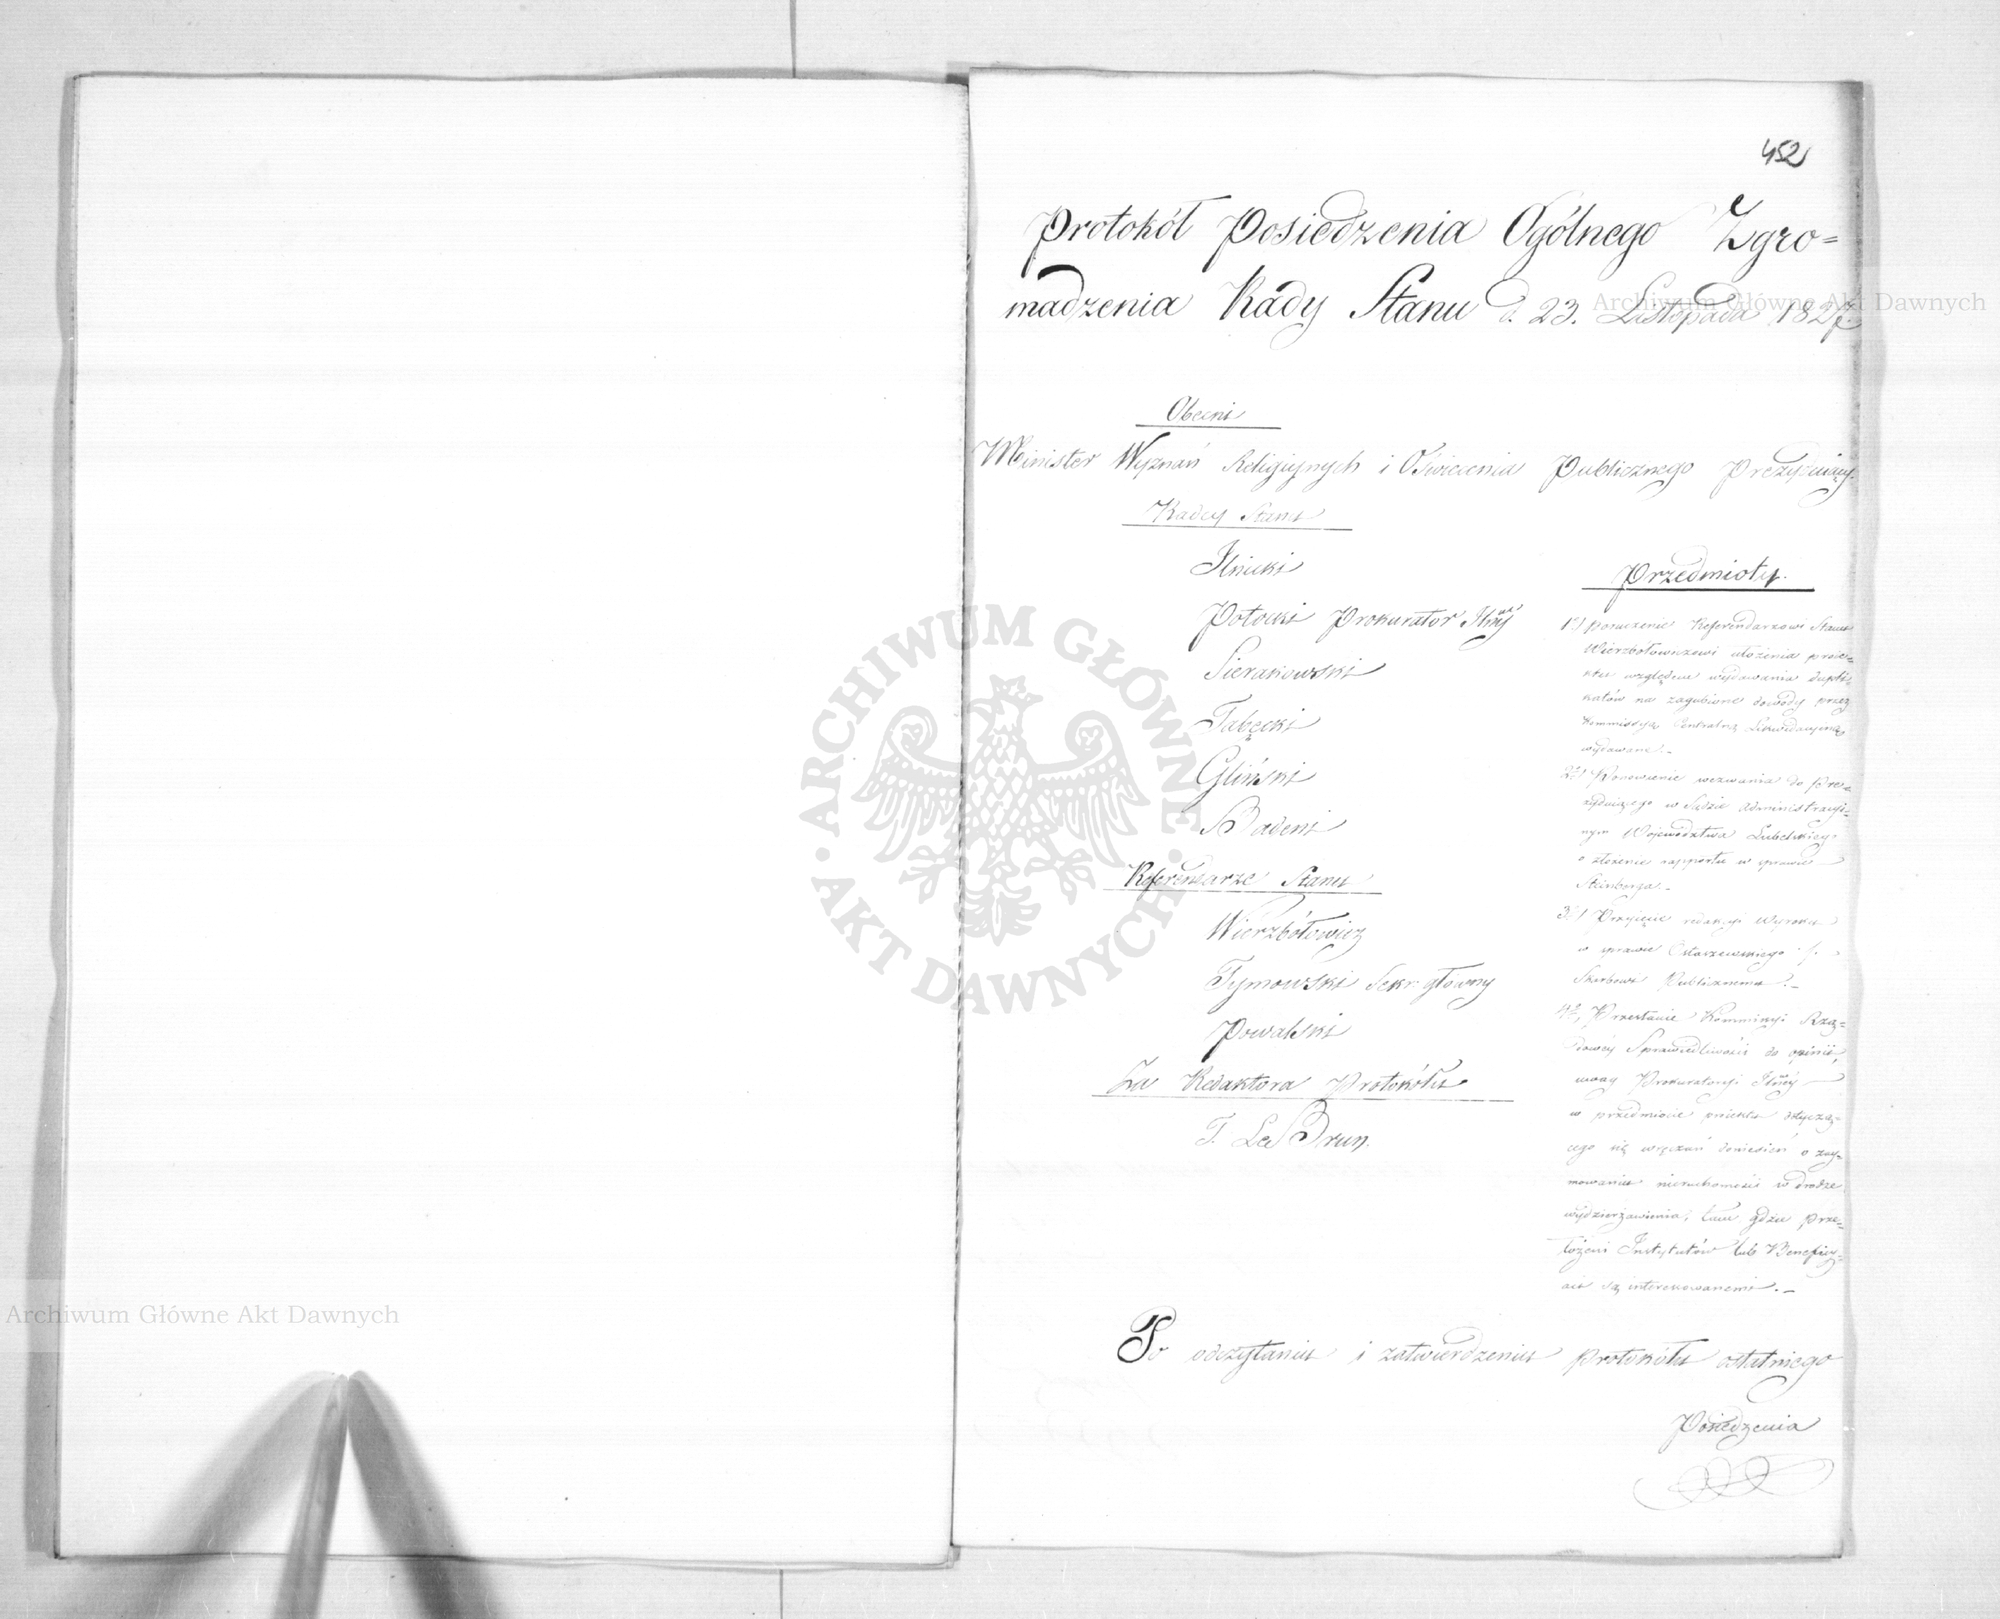 452
Protokół Posiedzenia Ogólnego Zgro=
madzenia Rady Stanu d. 23. Listopada 1827.
Obecni
Minister Wyznań Religijnych i Oświecenia Publicznego Prezydujący.
Radcy Stanu
Ilnicki
Potocki Prokurator
Sierakowski
Tabęcki
Gliński
Badeni
Referendarze Stanu
Wierzbołowicz
Tymowski Sekr: główny
Powalski
Za Redaktora Protokółu
T. Le Brun.
Przedmioty.
1o) Poruczenie Referendarzowi Stanu
Wierzbołowiczowi ułożenia proie=
ktu względem wydawania dupli=
katów na zagubione dowody przez
Kommissyą Centralną Likwidacyiną
wydawane.
2o) Ponowienie wezwania do Pre=
zyduiącego w Sądzie Administracyi=
nym Województwa Lubelskiego
o złożenie rapportu w sprawie
Steinberga.
3o) Przyięcie redakcyi Wyroku
w sprawie Ostaszewskiego
Skarbowi Publicznemu.
4o, Przesłanie Kommissyi Rzą=
dowéy Sprawiedliwości do opinii,
uwag Prokuratoryi
w przedmiocie proiektu dotyczą=
cego się wręczań doniesień o zay=
mowaniu nieruchomości w drodze
wydzierżawienia, tam gdzie prze=
łożeni Instytutów lub Beneficy=
aci są interesowanemi.
Po odczytaniu i zatwierdzeniu protokółu ostatniego
Posiedzenia
Archiwum Główne Akt Dawnych
ARCHIWUM GŁÓWNE
AKT DAWNYCH
Archiwum Główne Akt Dawnych